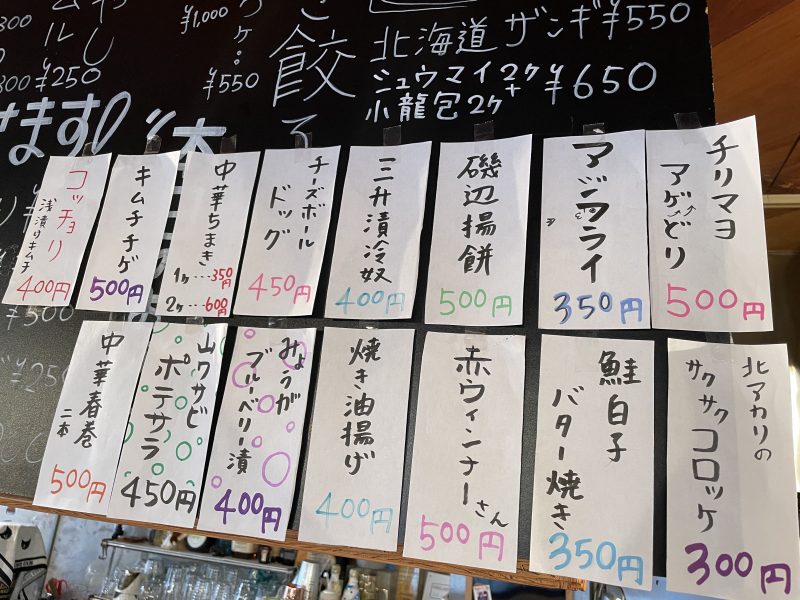 北海道ザンギ¥550
シュウマイ2ケ+
小龍包2ケ
¥650
¥1,000
¥550
¥250
餃子
けます!
チリマヨ
アゲどり
500円
アジフライ
350円
磯辺揚餅
500円
三升漬冷奴
400円
チーズボール
ドッグ
450円
中華ちまき
1ケ…350円
2ケ…600円
キムチチゲ
500円
コッチョリ
浅漬りキムチ
400円
北アカリの
サクサクコロッケ
300円
鮭白子
バター焼き
350円
赤ウィンナーさん
500円
焼き油揚げ
400円
みょうが
ブルーベリー漬
400円
山ワサビ
ポテサラ
450円
中華春巻
二本
500円